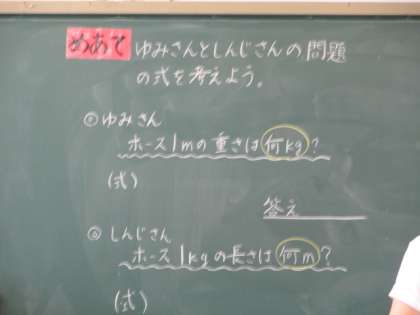 めあて ゆみさんとしんじさんの問題
の式を考えよう。
①ゆみさん
ホース1mの重さは何kg?
(式)
答え
②しんじさん
ホース1kgの長さは何m?
(式)